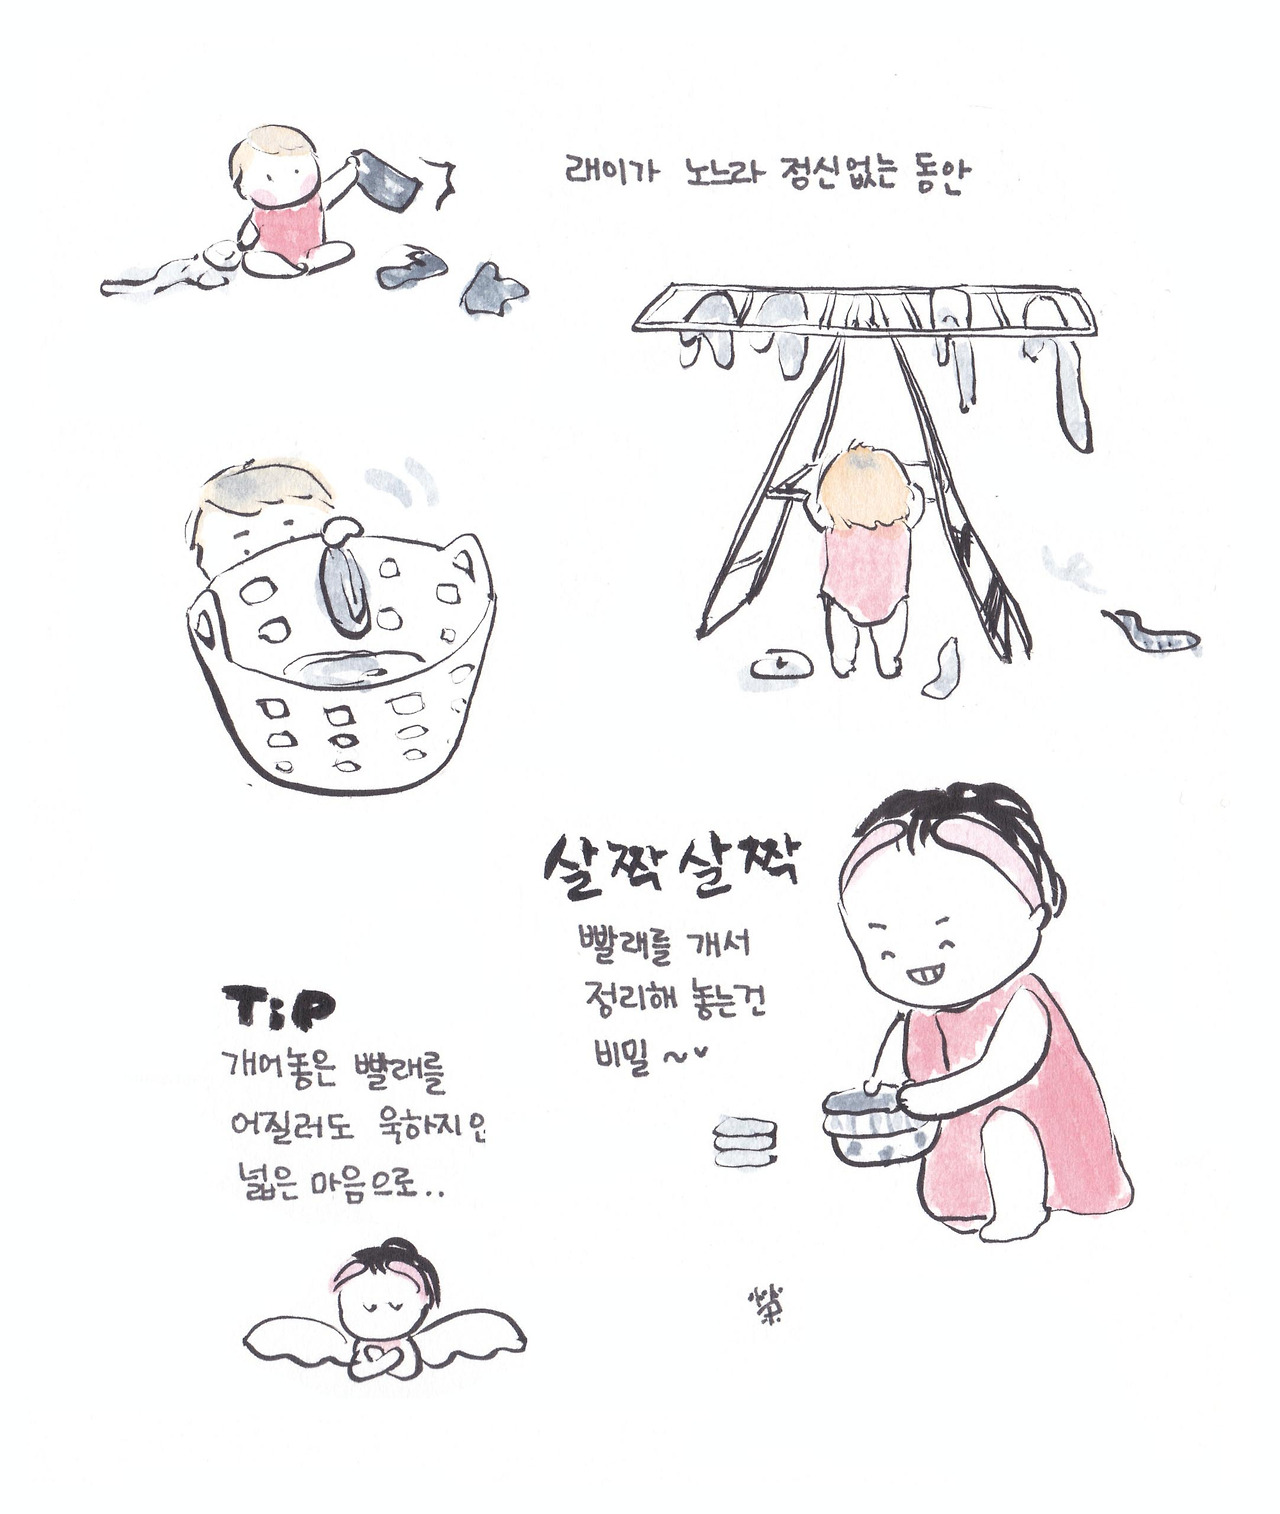 래이가 노느라 정신없는 동안
살짝살짝
빨래를 개서
정리해 놓는건
비밀 ~♥
TiP
개어놓은 빨래를
어질러도 욱하지 않
넓은 마음으로..
榮